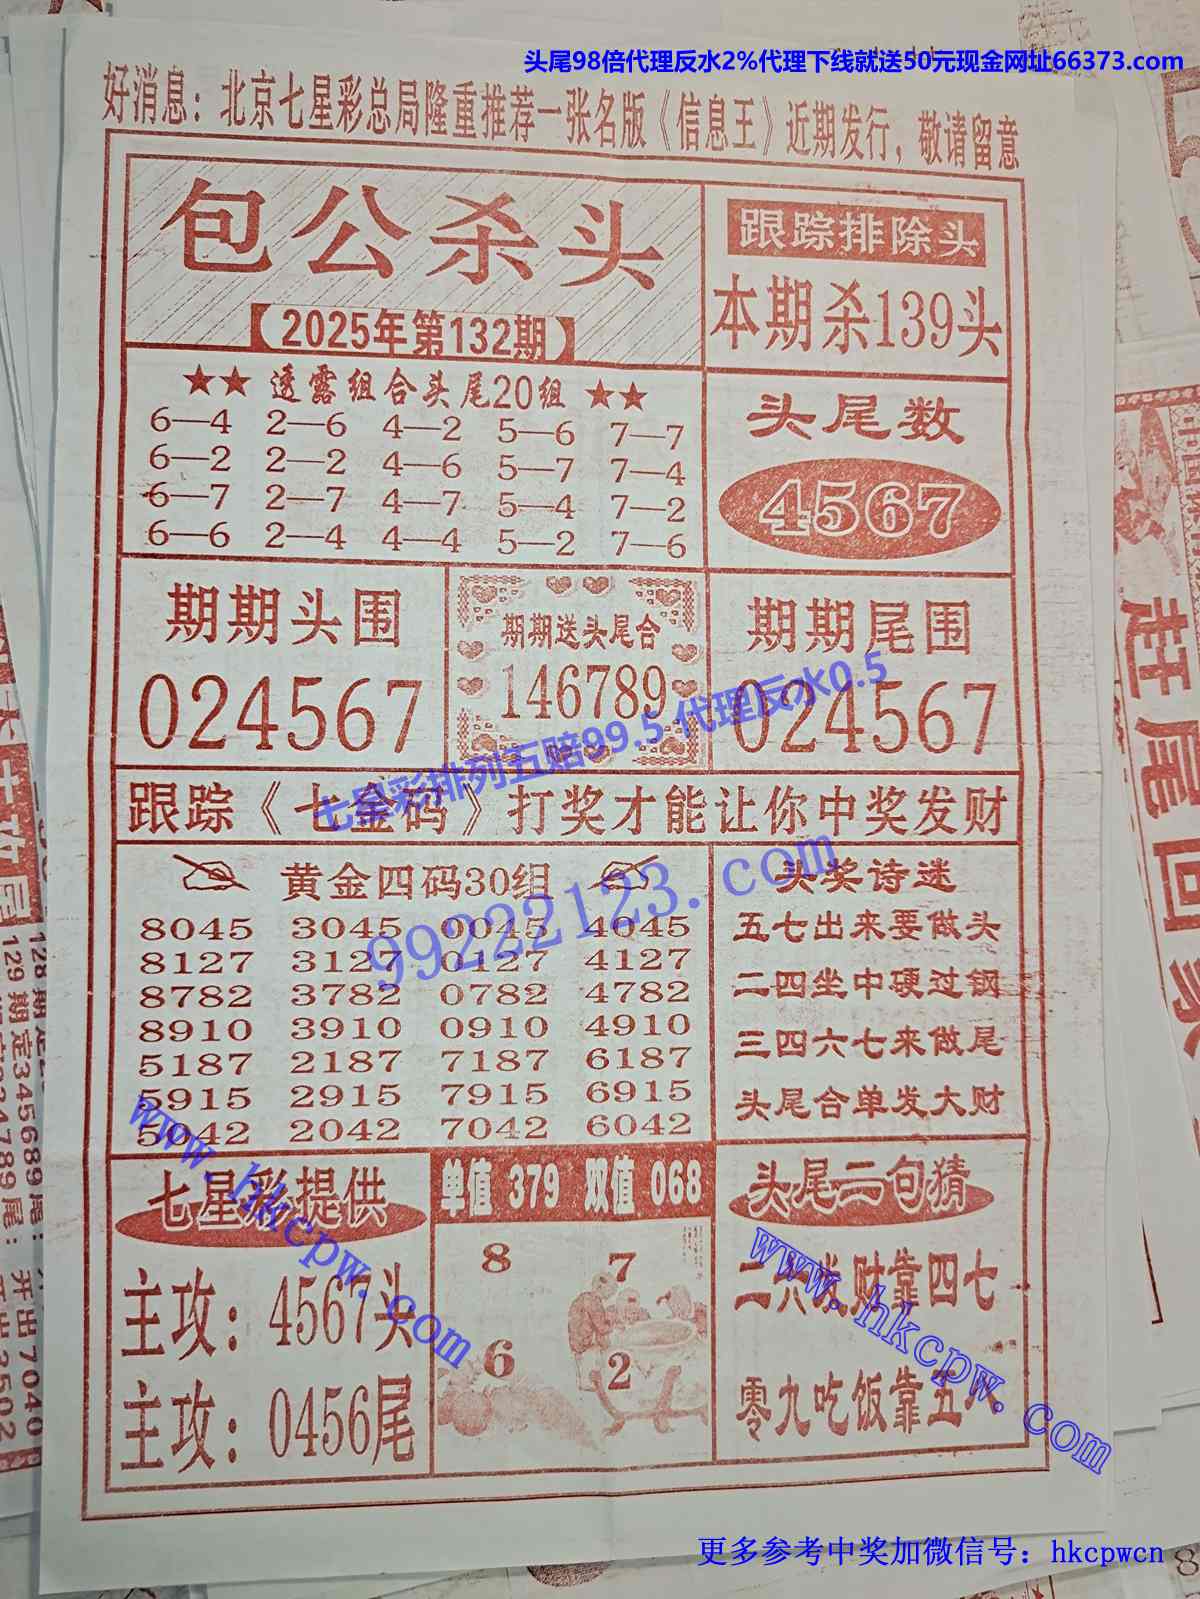 头尾98倍代理反水2%代理下线就送50元现金网址66373.com
好消息：北京七星彩总局隆重推荐一张名版《信息王》近期发行，敬请留意
包公杀头
【2025年第132期】
跟踪排除头
本期杀139头
★★ 透露组合头尾20组 ★★
6—4 2—6 4—2 5—6 7—7
6—2 2—2 4—6 5—7 7—4
6—7 2—7 4—7 5—4 7—2
6—6 2—4 4—4 5—2 7—6
头尾数
4567
期期头围
024567
期期送头尾合
146789
期期尾围
024567
七星彩排列五赔99.5 代理反水0.5
跟踪《七金码》打奖才能让你中奖发财
99222123.com
黄金四码30组
8045 3045 0045 4045
8127 3127 0127 4127
8782 3782 0782 4782
8910 3910 0910 4910
5187 2187 7187 6187
5915 2915 7915 6915
5042 2042 7042 6042
头奖诗迷
五七出来要做头
二四坐中硬过钢
三四六七来做尾
头尾合单发大财
www.hkcpw.com
七星彩提供
主攻：4567头
主攻：0456尾
单值 379 双值 068
8 7
6 2
头尾二句猜
二六发财靠四七
零九吃饭靠五八
www.hkcpw.com
更多参考中奖加微信号：hkcpwcn
赶尾回家
129期定345689尾：
开出7040
开出2502